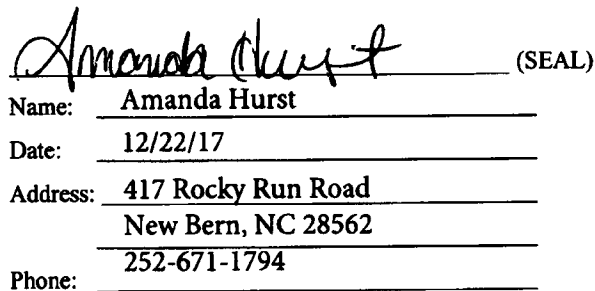 Amanda Hurst (SEAL)
Name: Amanda Hurst
Date: 12/22/17
Address: 417 Rocky Run Road
New Bern, NC 28562
Phone: 252-671-1794